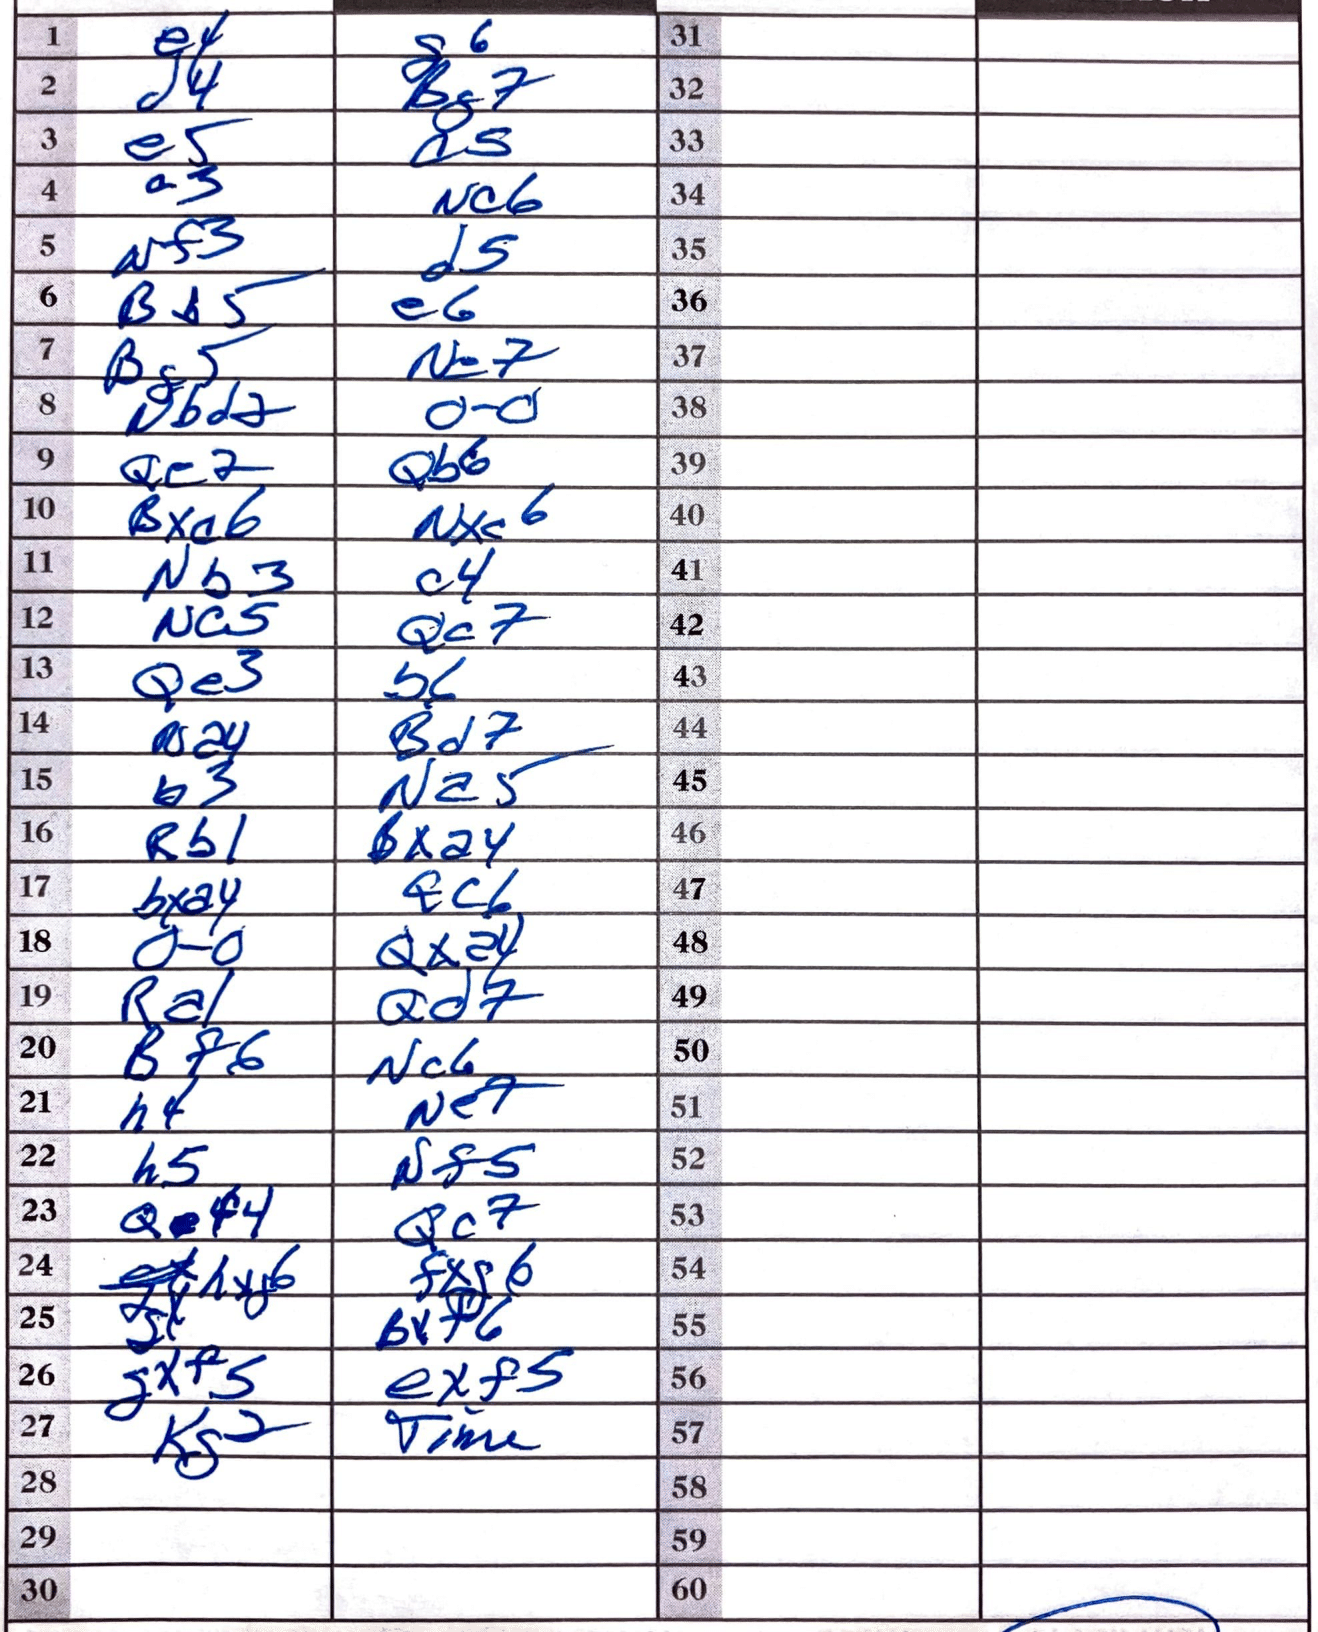 1 e4 g6 31
2 d4 Bg7 32
3 e5 c5 33
4 c3 Nc6 34
5 Nf3 d5 35
6 Bb5 e6 36
7 Bg5 Ne7 37
8 Nbd2 0-0 38
9 Qe2 Qb6 39
10 Bxc6 Nxc6 40
11 Nb3 c4 41
12 Nc5 Qc7 42
13 Qe3 b6 43
14 Na4 Bd7 44
15 b3 Na5 45
16 Rb1 Bxa4 46
17 bxa4 Qc6 47
18 0-0 Qxa4 48
19 Ra1 Qd7 49
20 Bf6 Nc6 50
21 h4 Ne7 51
22 h5 Nf5 52
23 Qf4 Qc7 53
24 hxg6 fxg6 54
25 g4 Bxf6 55
26 gxf5 exf5 56
27 Kg2 Time 57
28 58
29 59
30 60